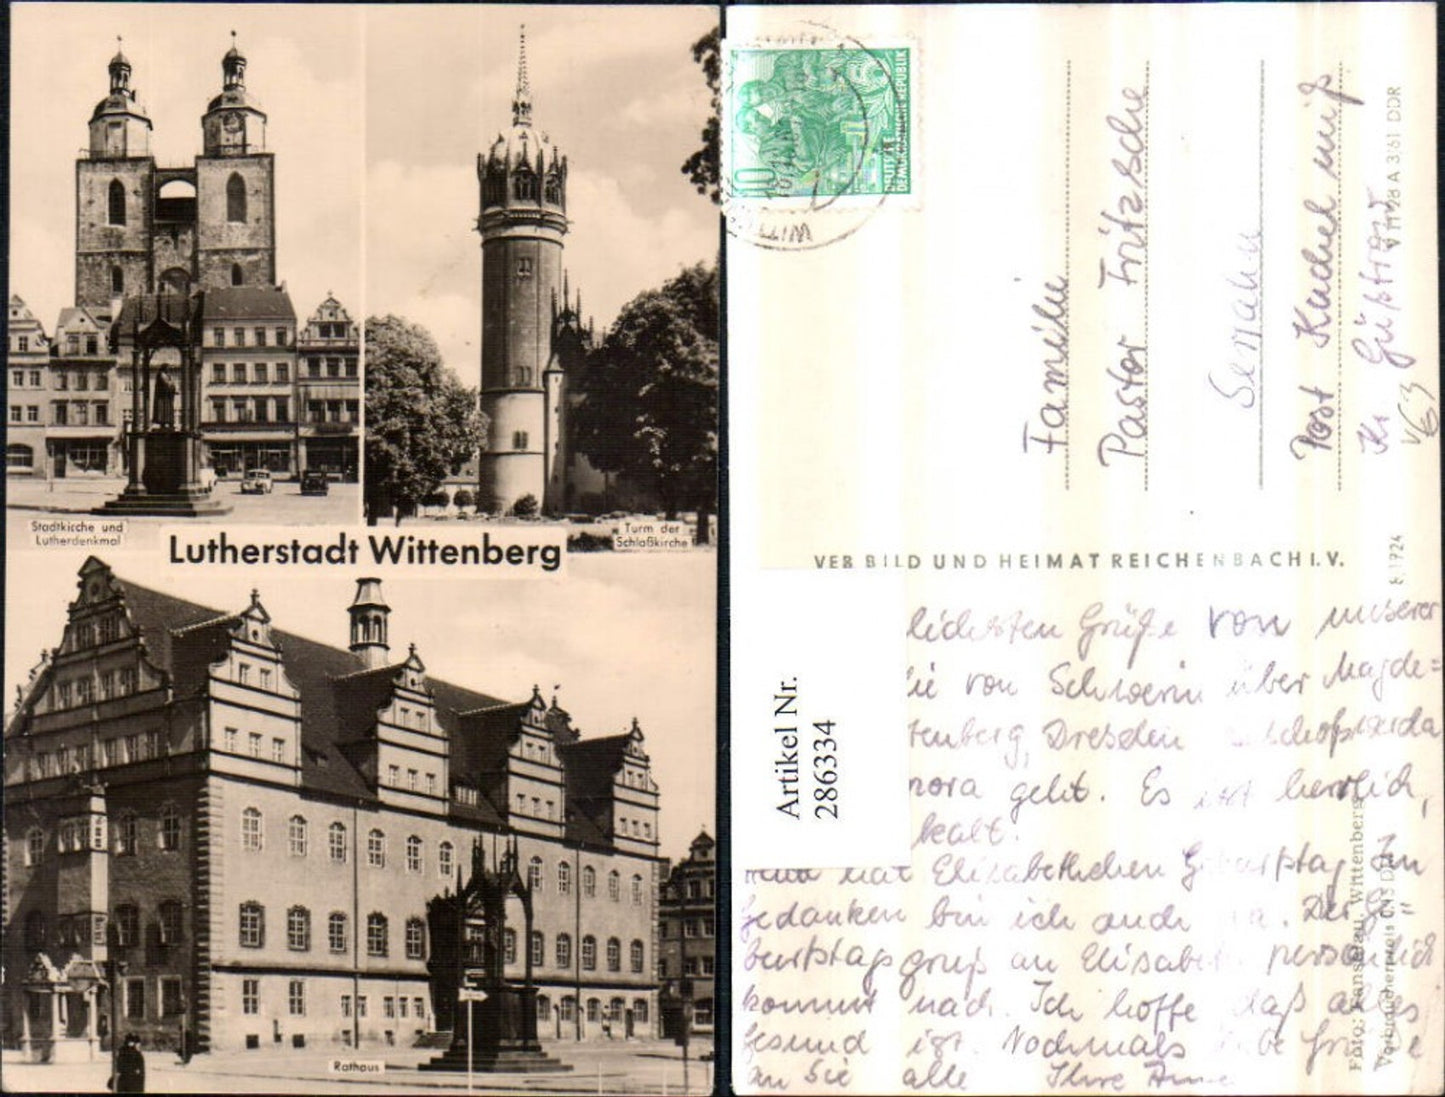 Stadtkirche und
Lutherdenkmal
Turm der
Schloßkirche
Lutherstadt Wittenberg
Rathaus
10
DEUTSCHE
DEMOKRATISCHE REPUBLIK
WITT
Familie
Pastor Fritzsche
Semahn
Post Kuchelmiß
Kr Güstrow
V 11 28 A 3/61 DDR
VEB BILD UND HEIMAT REICHENBACH I. V.
8 1724
Artikel Nr.
286334
lichsten Grüße von unserer
die von Schwerin über Magde=
tenberg, Dresden
nora geht. Es ist herrlich,
kalt.
hat Elisabethchen Geburtstag. In
Gedanken bin ich auch da. Der Ge
burtstagsgruß an Elisabeth persönlich
kommt nach. Ich hoffe daß alles
gesund ist. Nochmals liebe Grüße
an Sie alle Ihre
Foto: Hans Blau, Wittenberg
Verbraucherpreis 0,15 DM